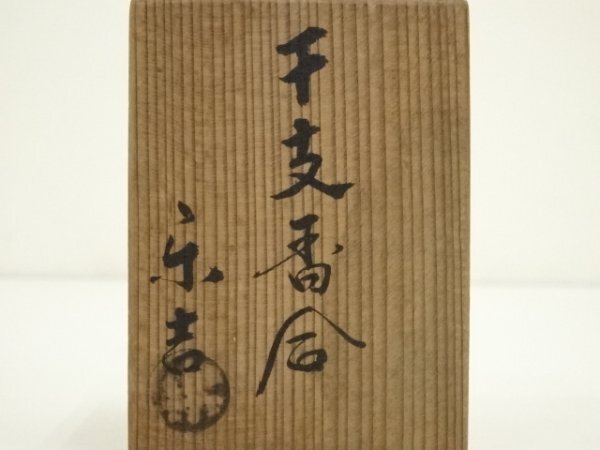 干支香合
楽吉